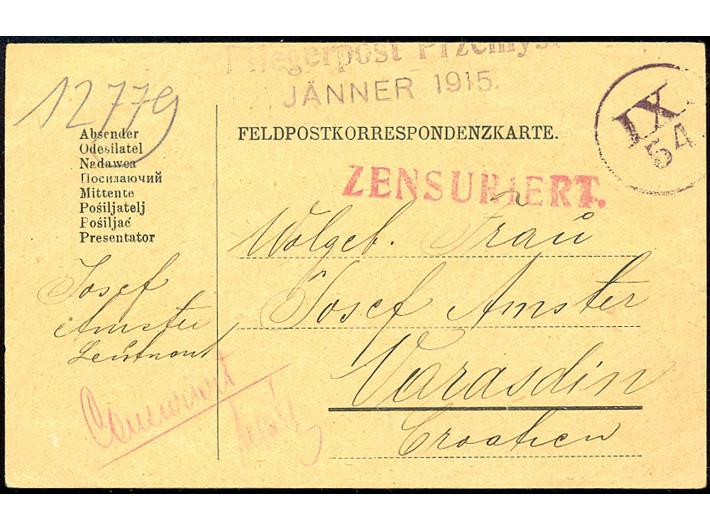 Fliegerpost Przemyśl
JÄNNER 1915.
12779
IX
54
Absender
Odesilatel
Nadawca
Посилаючий
Mittente
Pošiljatelj
Pošiljač
Presentator
FELDPOSTKORRESPONDENZKARTE.
ZENSURIERT.
Wolgeb. Fraŭ
Josef Amster
Varasdin
Croatien
Josef
Amster
Leŭtnant